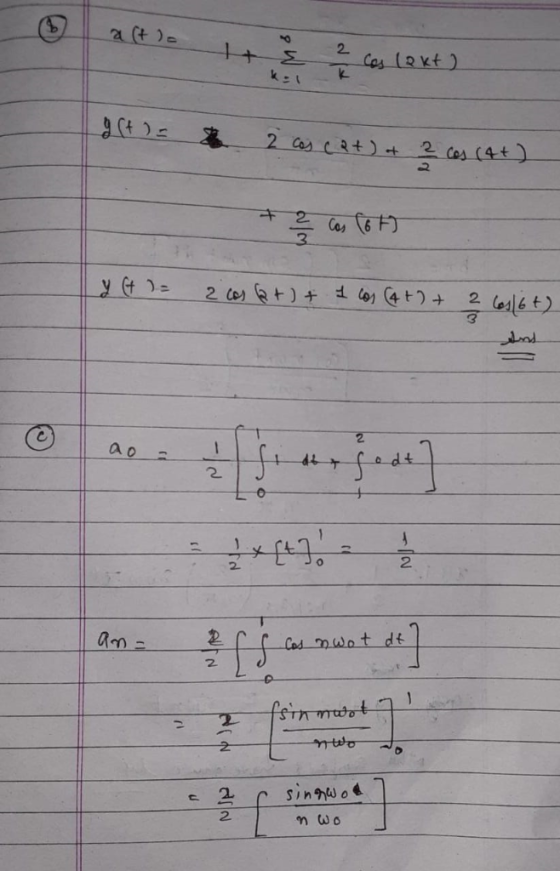 (b) x(t) = 1 + ∞ Σ k=1 2/k cos(2kt)
y(t) = 2 cos(2t) + 2/2 cos(4t)
+ 2/3 cos(6t)
y(t) = 2 cos(2t) + 1 cos(4t) + 2/3 cos(6t)
Ans
(c) a0 = 1/2 [ ∫₀¹ 1 dt + ∫₁² 0 dt ]
= 1/2 × [t]₀¹ = 1/2
an = 2/2 [ ∫₀¹ cos nω0t dt ]
= 2/2 [ sin nω0t / nω0 ]₀¹
= 2/2 [ sin nω0 / nω0 ]